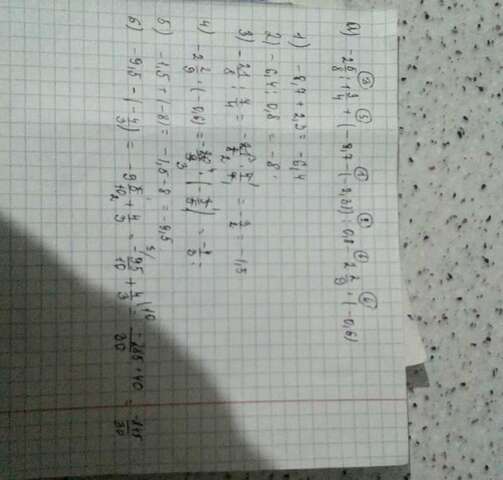 б) -2 5/8 : 1 3/4 + (-8,7 - (-2,3)) : 0,8 - 2 2/9 · (-0,6)
1) -8,7 + 2,3 = -6,4
2) -6,4 : 0,8 = -8
3) -21/8 : 7/4 = -21/8 · 4/7 = -3/2 = -1,5
4) -2 2/9 · (-0,6) =
5) -1,5 + (-8) = -1,5 - 8 = -9,5
6) -9,5 - (-4/3) = -9 5/10 + 4/3 = -95/10 + 4/3 = -285 + 40/30 =